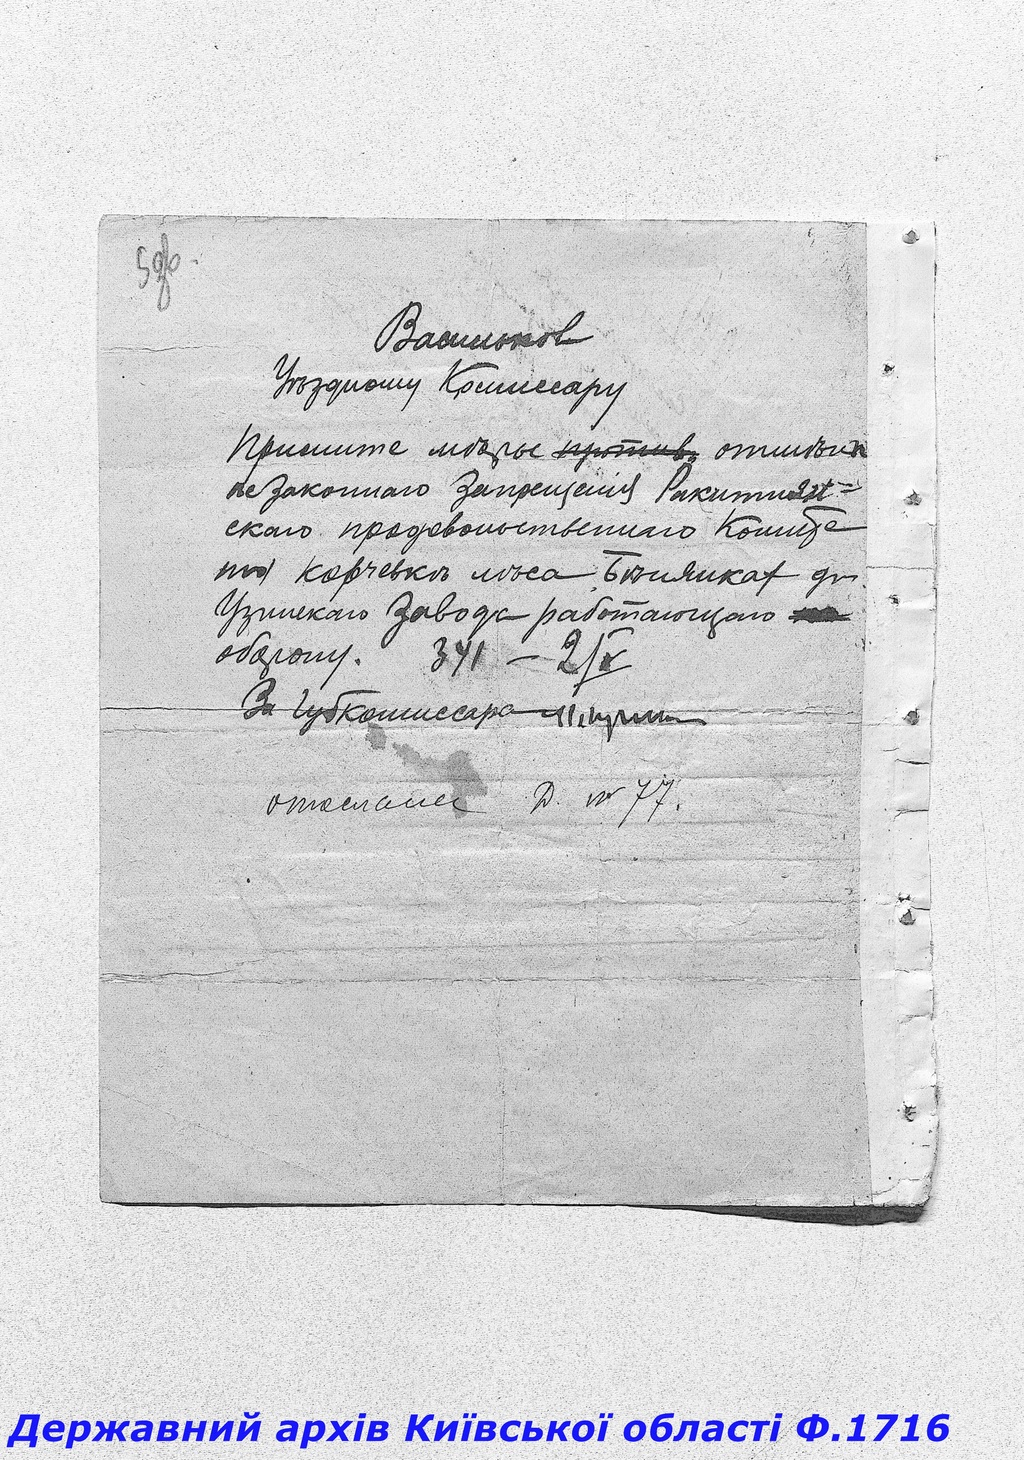 Васильков
Уѣздному Комиссару
Примите мѣры против. отмѣны
незаконнаго Запрещенія Ракитян-
скаго продовольственнаго Комите
та корчевкѣ лѣса для
Узинскаго Завода работающаго на
оборону. 341 — 2/V
За Губкомиссара
отослано Д. № 77.
Державний архів Київської області Ф.1716